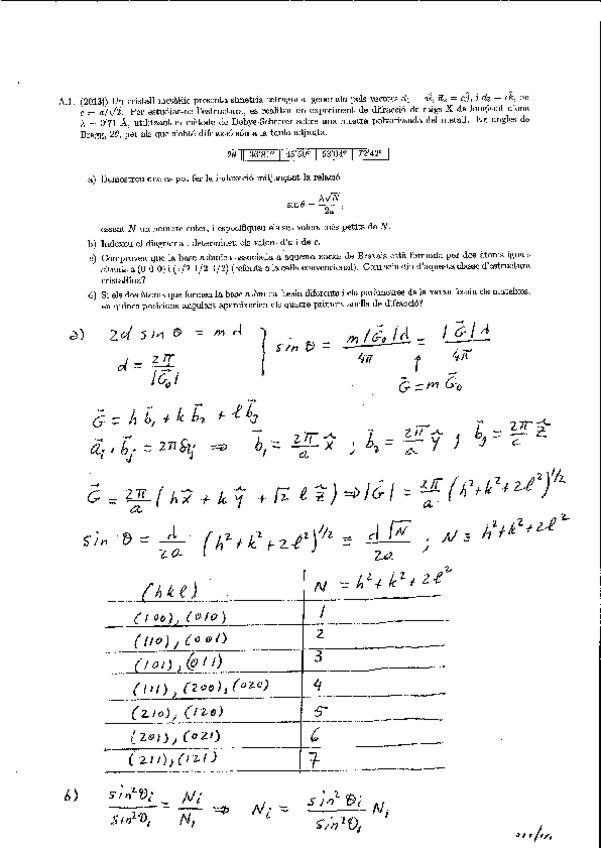 A.1. (2013j) Un cristall metàl·lic presenta simetria tetragonal generada pels vectors a⃗₁ = aî, a⃗₂ = aĵ, i a⃗₃ = ck̂, on
c = a/√2. Per estudiar-ne l'estructura, es realitza un experiment de difracció de raigs X de longitud d'ona
λ = 0'71 Å, utilitzant el mètode de Debye-Scherrer sobre una mostra policristal·lina del metall. Els angles de
Bragg, 2θ, pel als que s'obté difracció són a la taula adjunta.
2θ
a) Demostreu que es pot fer la indexació mitjançant la relació
sin θ = λ√N / 2a,
essent N un nombre enter, i especifiqueu els set valors més petits de N.
b) Indexeu el diagrama i determineu els valors d'a i de c.
c) Comproveu que la base atòmica associada a aquesta xarxa de Bravais està formada per dos àtoms iguals
situats a (0 0 0) i (1/2 1/2 1/2) (referits a la cel·la convencional).
cristal·lina?
d) Si els dos àtoms que formen la base
en quines posicions angulars apareixerien els quatre primers anells de difracció?
a) 2d sin θ = mλ
d = 2π / |G⃗₀|
sin θ = m|G⃗₀|λ / 4π = |G⃗|λ / 4π
G⃗ = mG⃗₀
G⃗ = h b⃗₁ + k b⃗₂ + l b⃗₃
a⃗ᵢ · b⃗ⱼ = 2πδᵢⱼ ⇒ b⃗₁ = 2π/a x̂ ; b⃗₂ = 2π/a ŷ ; b⃗₃ = 2π/c ẑ
G⃗ = 2π/a (hx̂ + kŷ + √2 l ẑ) ⇒ |G⃗| = 2π/a (h² + k² + 2l²)^1/2
sin θ = λ/2a (h² + k² + 2l²)^1/2 = λ√N / 2a ; N ≡ h² + k² + 2l²
(hkl) N = h² + k² + 2l²
(100), (010) 1
(110), (001) 2
(101), (011) 3
(111), (200), (020) 4
(210), (120) 5
(201), (021) 6
(211), (121) 7
b) sin²θᵢ / sin²θ₁ = Nᵢ / N₁ ⇒ Nᵢ = sin²θᵢ / sin²θ₁ N₁